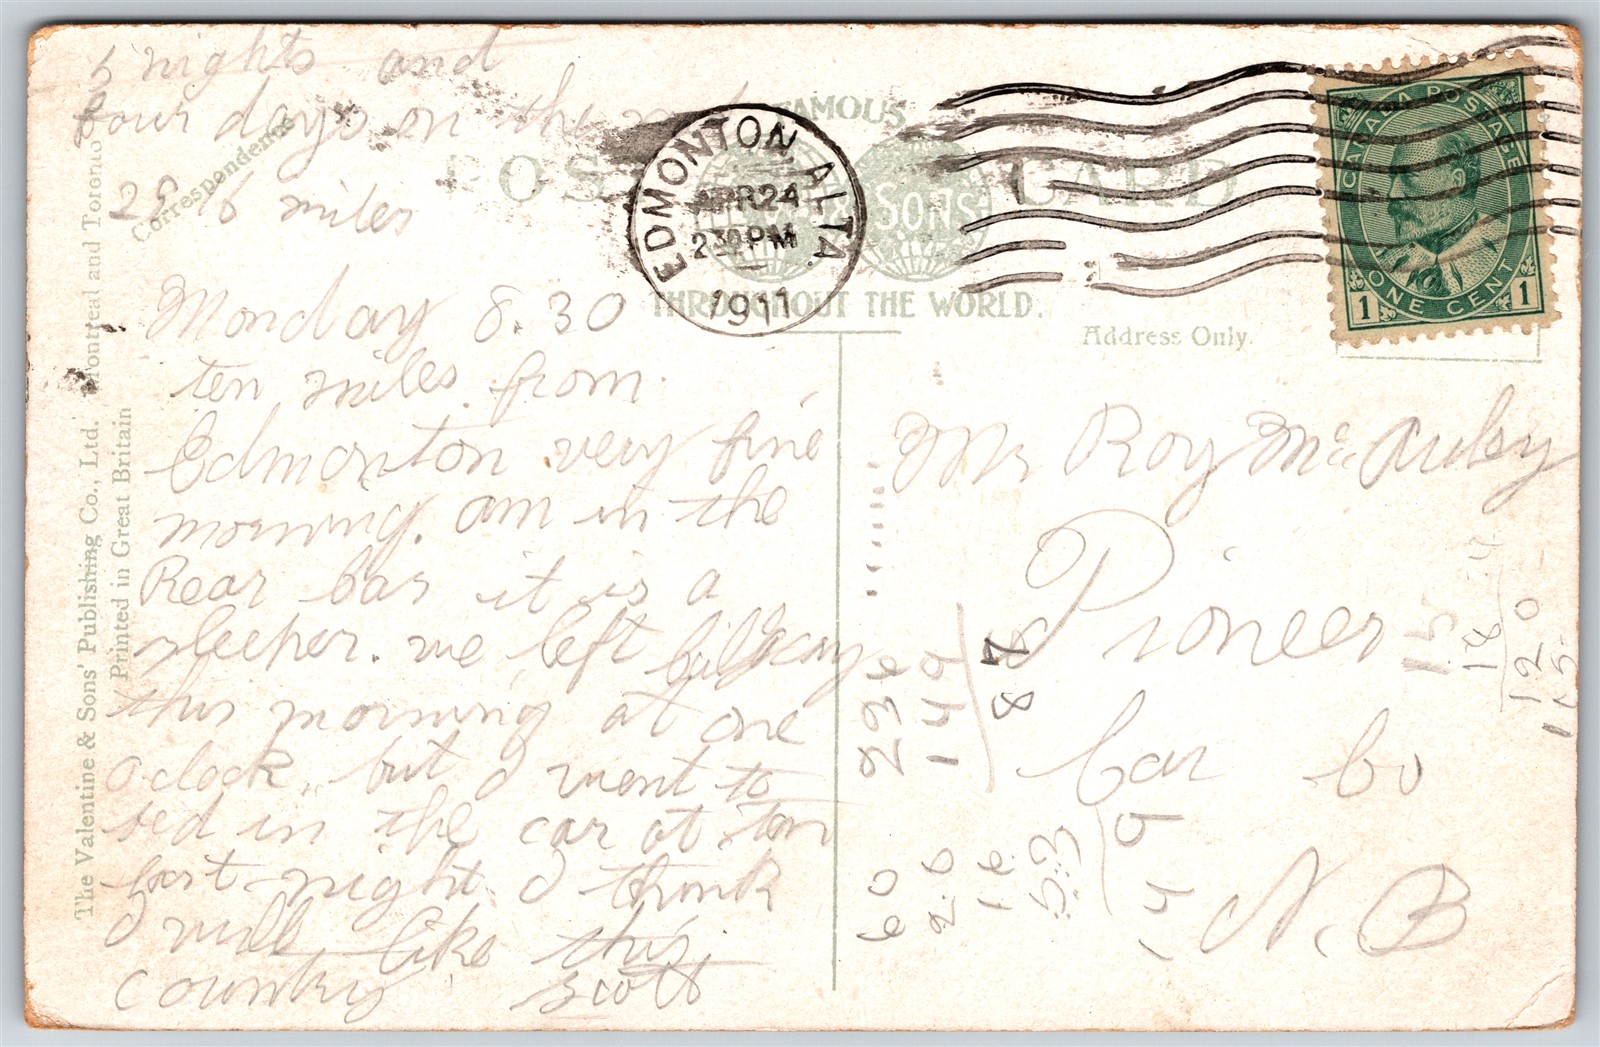 5 nights and
four days on the
miles
Monday 8.30
ten miles from
Edmonton very fine
morning. am in the
Rear car it is a
sleeper. we left
this morning at one
oclock. but I went to
bed in the car at ten
last night. I think
I will like this
country Scott
Correspondence
The Valentine & Sons' Publishing Co., Ltd. Montreal and Toronto
Printed in Great Britain
FAMOUS
POST CARD
& SONS
THROUGHOUT THE WORLD.
EDMONTON ALTA.
APR 24
2 30 PM
1911
CANADA POSTAGE
1 ONE CENT 1
Address Only.
Mr Roy Mc
Pioneer
Car Co
N. B
236
149
87
60
2.6
16
53
149
15
18
120
115